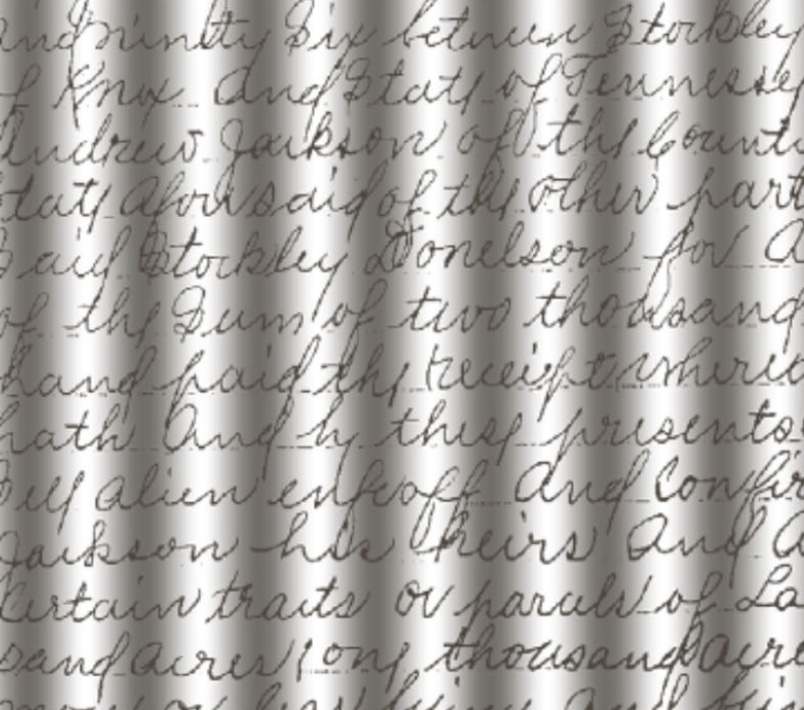 and ninety Six between Stockley
of Knox and State of Tennessee
Andrew Jackson of the Count
State aforesaid of the other part
Said Stockley Donelson for
of the Sum of two thousand
hand paid the receipt where
hath and by these presents
Sell alien enfeoff and Confir
Jackson his heirs and
Certain tracts or parcels of La
sand acres one thousand acre
more or less lying and bein